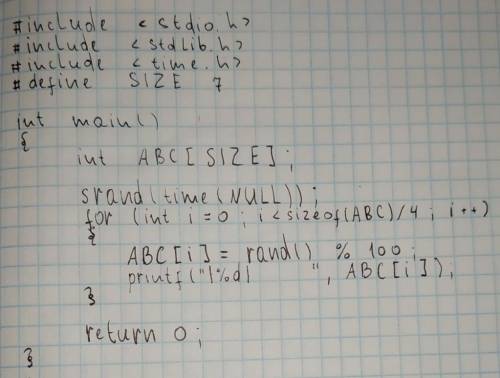 #include <stdio.h>
#include <stdlib.h>
#include <time.h>
#define SIZE 7
int main()
{
int ABC[SIZE];
srand(time(NULL));
for (int i=0; i<sizeof(ABC)/4; i++)
{
ABC[i]= rand() % 100;
printf("|%d| ", ABC[i]);
}
return 0;
}